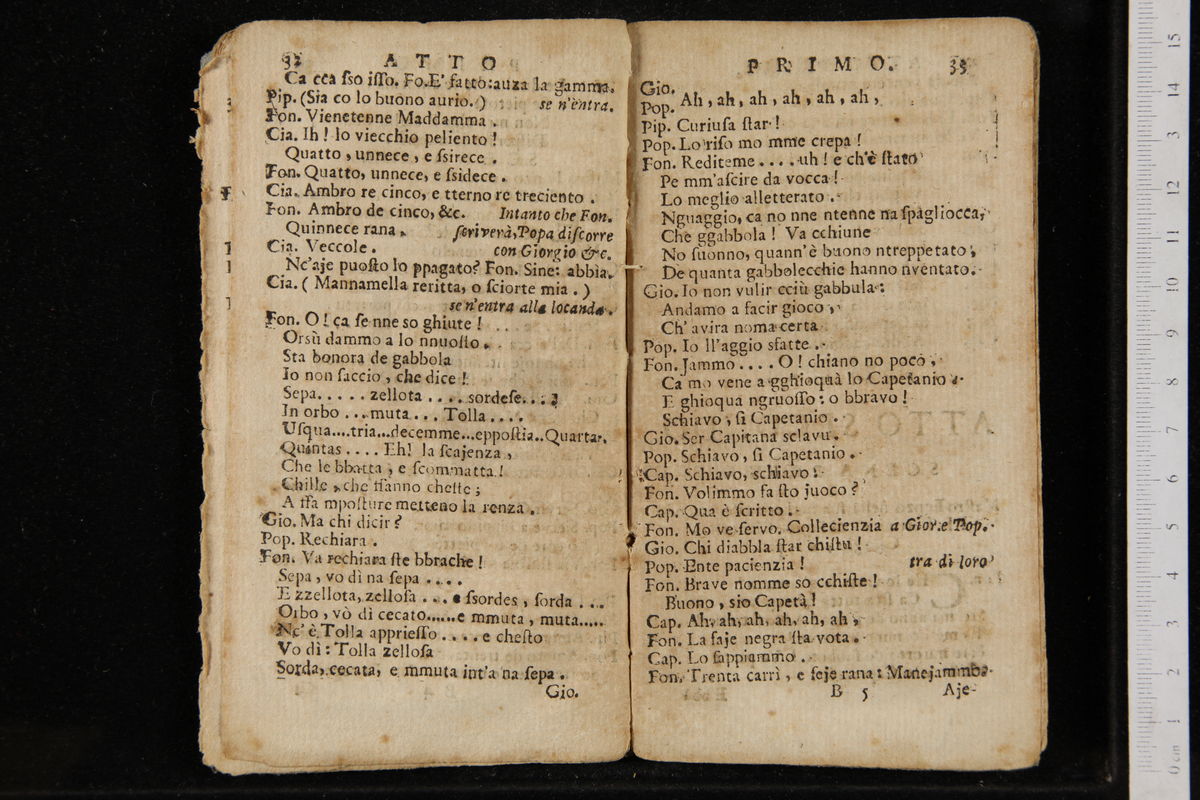 32 ATTO
Ca cca ſso iſſo. Fo. E' fatto: auza la gamma.
Pip. (Sia co lo buono aurio.) se n'èntra.
Fon. Vienetenne Maddamma.
Cia. Ih! lo viecchio peliento!
Quatto, unnece, e ſsirece.
Fon. Quatto, unnece, e ſsidece.
Cia. Ambro re cinco, e tterno re treciento.
Fon. Ambro de cinco, &c. Intanto che Fon.
Quinnece rana. ſcriverà, Popa diſcorre
Cia. Veccole. con Giorgio &c.
Nc'aje puoſto lo ppagato? Fon. Sine: abbìa.
Cia. ( Mannamella reritta, o ſciorte mia. )
se n'entra alla locanda.
Fon. O! ca ſe nne so ghiute!
Orsù dammo a lo nnuoſto.
Sta bonora de gabbola
Io non ſaccio, che dice!
Sepa..... zellota.... sordeſe....
In orbo... muta... Tolla....
Uſqua....tria...decemme...eppoſtia..Quarta..
Quintas.... Eh! la ſcajenza,
Che le bbatta, e ſcommatta!
Chille, che ſſanno cheſte;
A ſſa mpoſture metteno la renza.
Gio. Ma chi dicir?
Pop. Rechiara.
Fon. Va rechiara ſte bbrache!
Sepa, vo dì na ſepa....
E zzellota, zelloſa.... e ſsordes, ſorda....
Orbo, vò dì cecato......e mmuta, muta.....
Nc' è Tolla apprieſſo.... e cheſto
Vo dì: Tolla zelloſa
Sorda, cecata, e mmuta int'a na ſepa.
Gio.
PRIMO. 33
Gio.
Pop. Ah, ah, ah, ah, ah, ah,
Pip. Curiuſa ſtar!
Pop. Lo riſo mo mme crepa!
Fon. Rediteme.... uh! e ch'è ſtato
Pe mm'aſcire da vocca!
Lo meglio alletterato.
Nguaggio, ca no nne ntenne na ſpagliocca,
Che ggabbola! Va cchiune
No ſuonno, quann'è buono ntreppetato;
De quanta gabbolecchie hanno nventato.
Gio. Io non vulir cciù gabbula:
Andamo a facir gioco,
Ch' avira noma certa
Pop. Io ll'aggio sfatte.
Fon. Jammo.... O! chiano no poco,
Ca mo vene a gghioquà lo Capetanio.
E ghioqua ngruoſſo: o bbravo!
Schiavo, ſi Capetanio.
Gio. Ser Capitana sclavu.
Pop. Schiavo, ſi Capetanio.
Cap. Schiavo, schiavo:
Fon. Volimmo fa ſto juoco?
Cap. Qua è ſcritto.
Fon. Mo ve ſervo. Collecienzia a Gior. e Pop.
Gio. Chi diabbla ſtar chiſtu!
Pop. Ente pacienzia! tra di loro
Fon. Brave nomme so cchiſte!
Buono, sio Capetà!
Cap. Ah, ah, ah, ah, ah, ah,
Fon. La ſaje negra ſta vota.
Cap. Lo ſappiammo.
Fon. Trenta carrì, e ſeje rana: Manejammo.
B 5 Aje